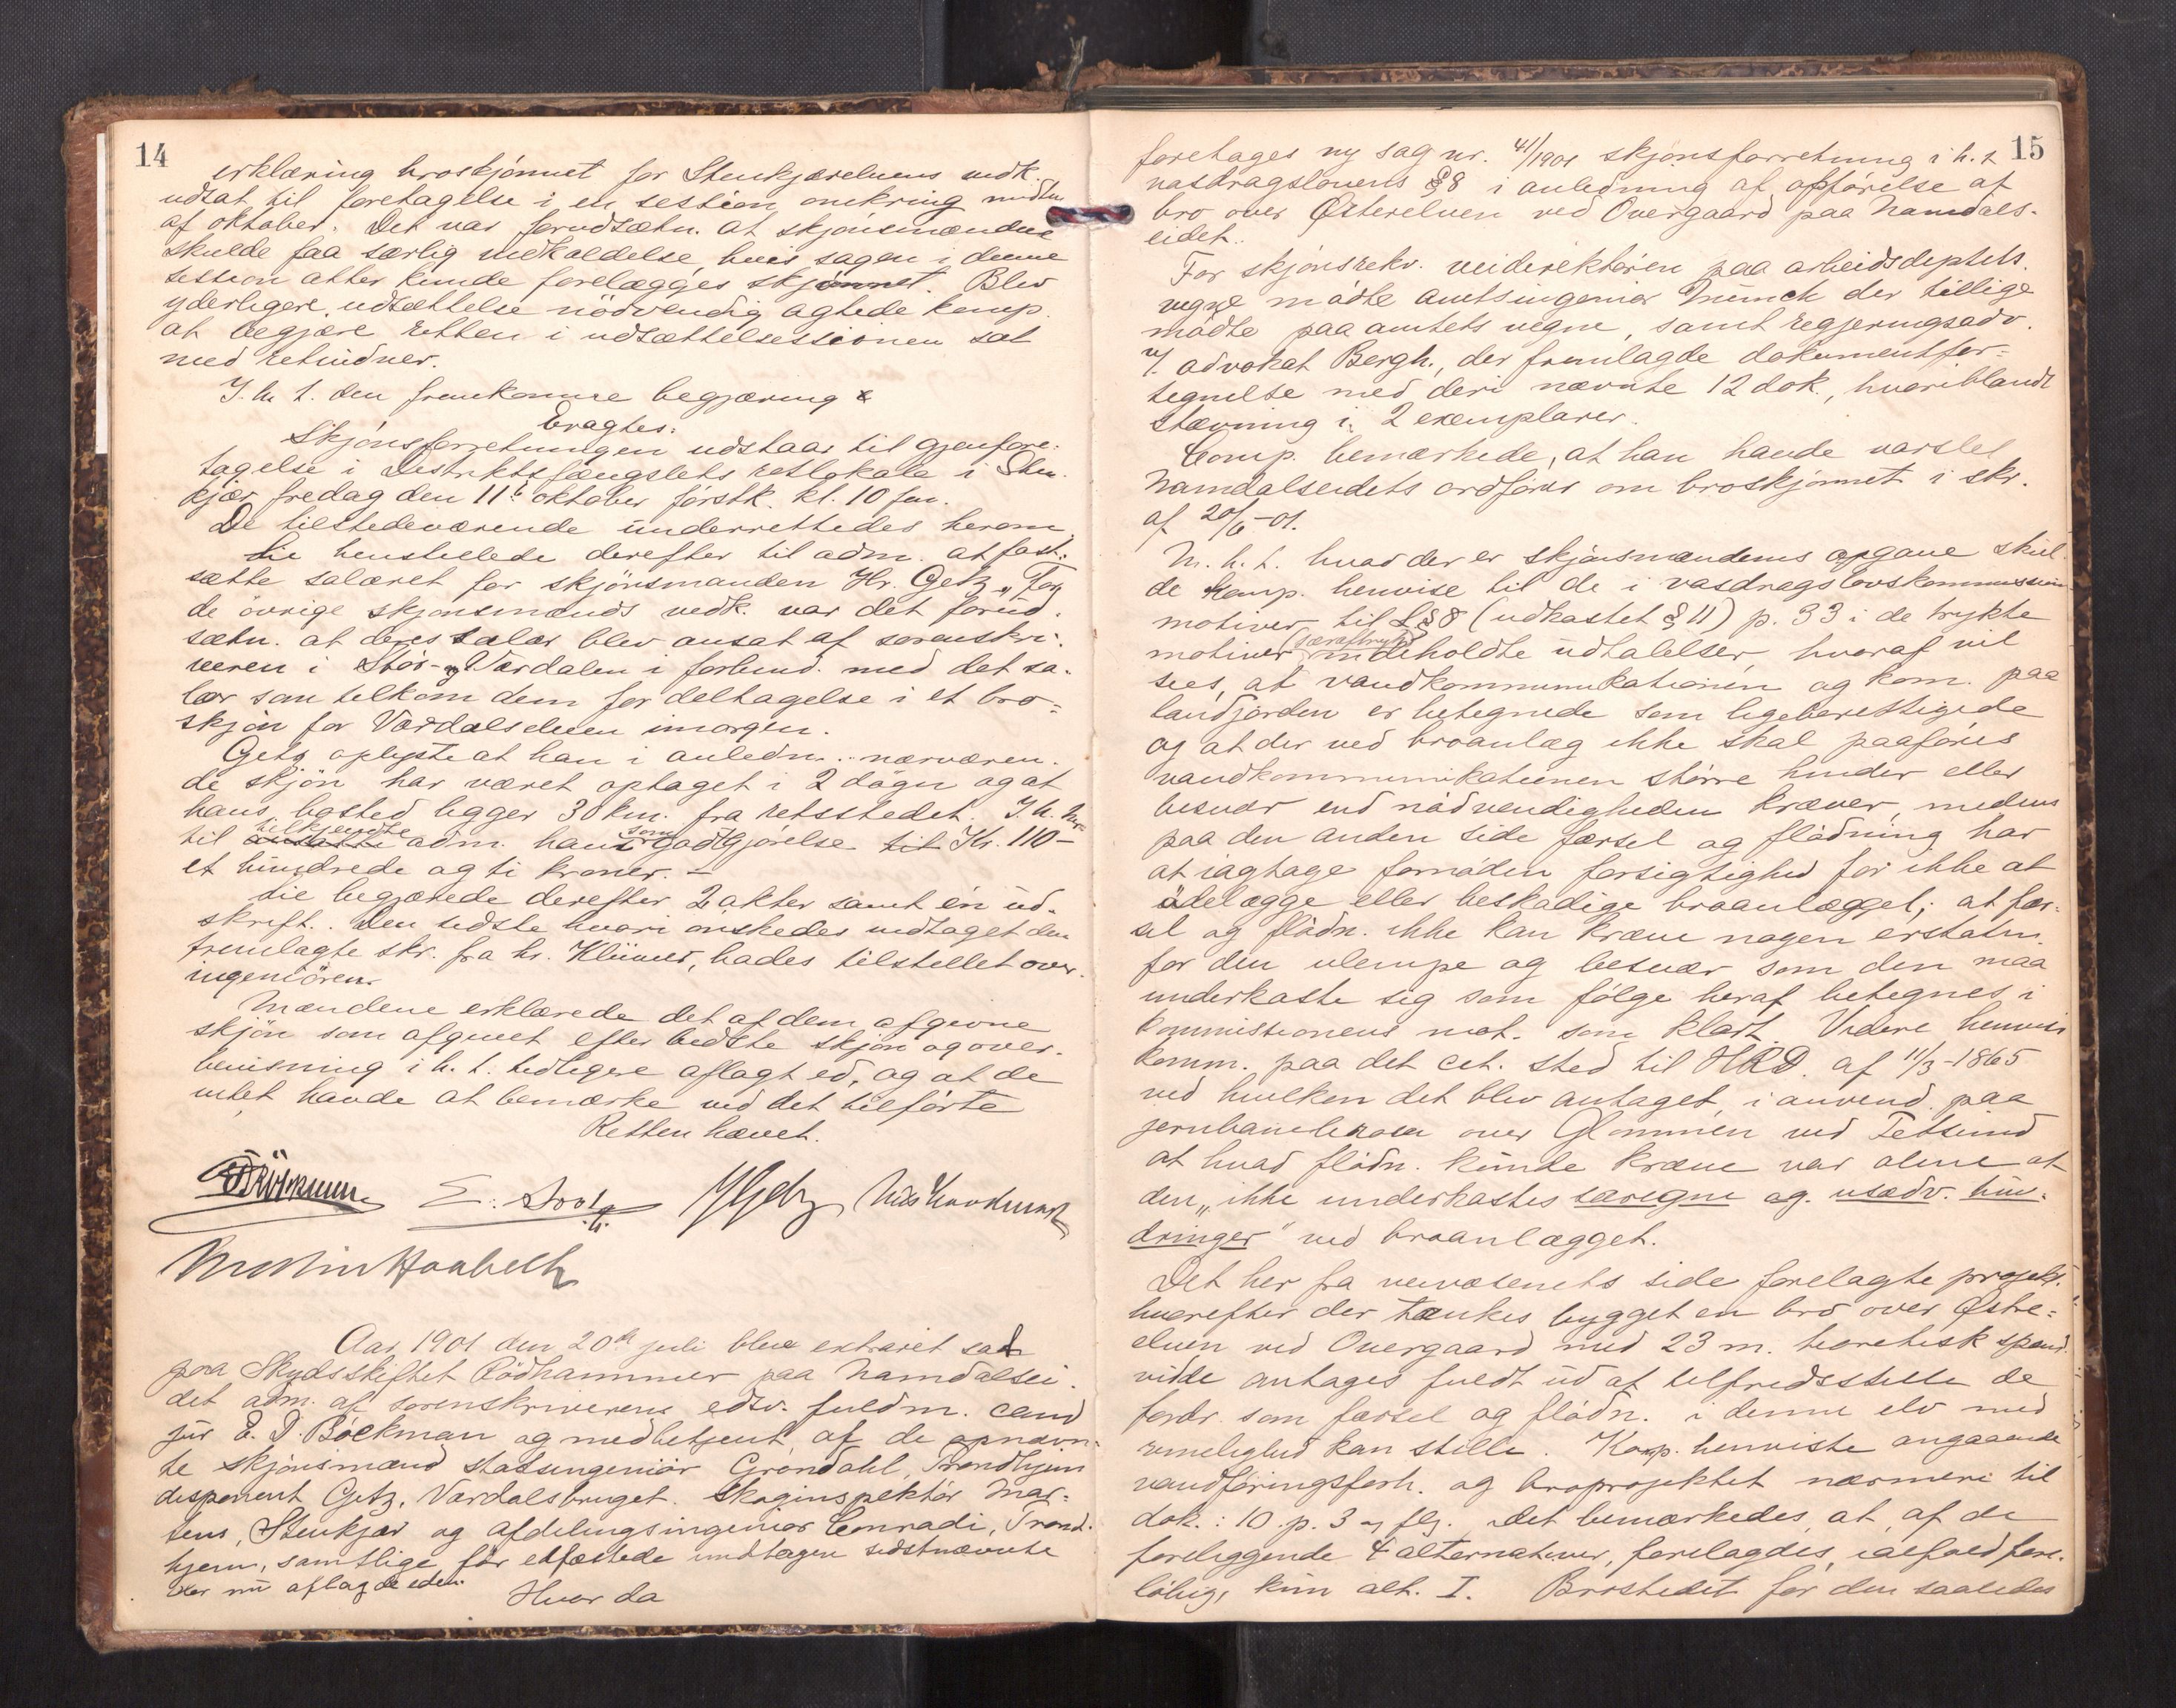 14
erklæring broskjönnet for Stenkjærelvens vedk.
udsat til foretagelse i en session omkring midten
af oktober. Det var forudsætn. at skjönsmændene
skulde faa særlig indkaldelse, hvis sagen i denne
session atter kunde forelægges skjönnet. Blev
yderligere udsættelse nödvendig agtede komp.
at begjære retten i udsættelsessionen sat
med retsvidner.
I. h. t. den fremkomne begjæring
Eragtes:
Skjönsforretningen udstaar til gjenfore-
tagelse i Distriktsfængslets retslokale i Sten-
kjær fredag den 11te oktober förstk. kl. 10 fm.
De tilstedeværende underrettedes herom
Die henstillede derefter til adm. at fast-
sætte salæret for skjönsmanden Hr. Getz. For
de övrige skjönsmænds vedk. var det forud-
sætn. at deres salær blev ansat af sorenskri-
veren i Stör- og Værdalen i forbind. med det sa-
lær som tilkom dem for deltagelse i et bro-
skjön for Værdalselven imorgen.
Getz oplyste at han i anledn. nærværen-
de skjön har været optaget i 2 dögn og at
hans bosted ligger 30 km. fra retsstedet. I. h. her-
til tilkjendte adm. ham som godtgjörelse til Kr. 110 -
et hundrede og ti kroner. -
Die begjærede derefter 2 akter samt én ud-
skrift. Den sidste hvori önskedes indtaget den
fremlagte skr. fra hr. Klüwer, bades tilstillet over-
ingeniören.
Mændene erklærede det af dem afgivne
skjön som afgivet efter bedste skjön og over-
bevisning i h. t. tidligere aflagt ed, og at de
intet havde at bemærke ved det tilförte
Retten hævet.
EDBöckman E. Getz
Martin Haabeth
Aar 1901 den 20de juli blev extraret sat
paa Skydsskiftet Rödhammer paa Namdalsei-
det adm. af sorenskriverens edsv. fuldm. cand
jur E. D. Böckman og medbetjent af de opnævn-
te skjönsmænd stadsingeniör Gröndahl, Trondhjem
disponent Getz, Værdalsbruget. Skoginspektör Mar-
tens, Stenkjær og afdelingsingeniör Conradi, Trond-
hjem, samtlige för edfæstede undtagen sidstnævnte
der nu aflagde eden.
Hvor da
15
foretages ny sag nr. 41/1901 skjönsforretning i h. t
vasdragslovens § 8 i anledning af opförelse af
bro over Österelven ved Overgaard paa Namdals-
eidet.
For skjönsrekv. veidirektören paa arbeidsdeptets
vegne mödte amtsingeniör Münch der tillige
mödte paa amtets vegne, samt regjeringsadv.
v/ advokat Bergh, der fremlagde dokumentfor-
tegnelse med deri nævnte 12 dok., hvoriblandt
stævning i 2 exemplarer.
Comp. bemærkede, at han havde varslet
Namdalseidets ordförer om broskjönnet i skr.
af 20/6-01.
M. h. t. hvad der er skjönsmændenes opgave skul-
de komp. henvise til de i vasdragslovskommissionens
motiver til L § 8 (udkastet § 11) p. 33 i de trykte
motiver indeholdte udtalelser, hvoraf vil
sees, at vandkommunikationen og kom. paa
landjorden er betegnede som ligeberettigede
og at der ved broanlæg ikke skal paaföres
vandkommunikationen större hinder eller
besvær end nödvendigheden kræver, medens
paa den anden side færsel og flödning har
at iagtage fornöden forsigtighed for ikke at
ödelægge eller beskadige broanlægget; at fær-
sel og flödn. ikke kan kræve nogen erstatn.
for den ulempe og besvær som den maa
underkaste sig som fölge heraf betegnes i
kommissionens mot. som klart. Videre henviser
komm. paa det cit. sted til HRD. af 11/3-1865
ved hvilken det blev antaget, i anvend. paa
jernbanebroen over Glommen ved Fetsund
at hvad flödn. kunde kræve var alene at
den „ikke underkastes særegne og usædv. hin-
dringer" ved broanlægget.
Det her fra veivæsenets side forelagte projekt
hvorefter der tænkes bygget en bro over Östre-
elven ved Overgaard med 23 m. teoretisk spænd-
vidde antages fuldt ud at tilfredsstille de
fordr. som færsel og flödn. i denne elv med
rimelighed kan stille. Komp. henviste angaaende
vandföringsforh. og broprojektet nærmere til
dok.: 10. p. 3 og flg. Det bemærkedes, at af de
foreliggende 4 alternativer, forelagdes, ialfald fore-
löbig, kun alt. I. Brostedet for den saaledes